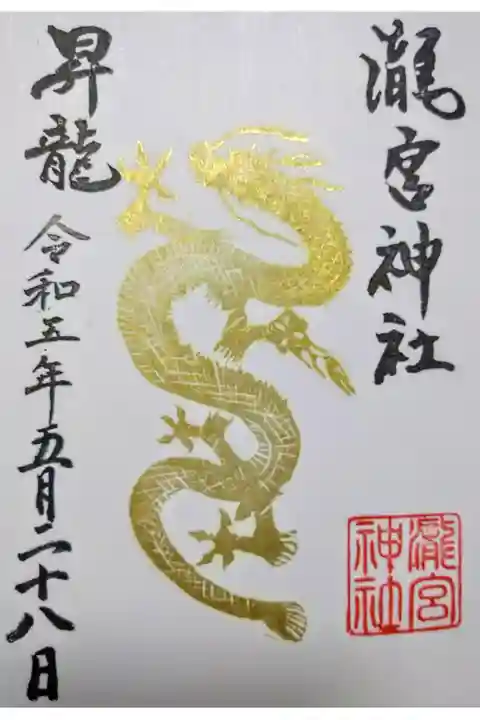 瀧宮神社
瀧宮
神社
昇龍 令和五年五月二十八日